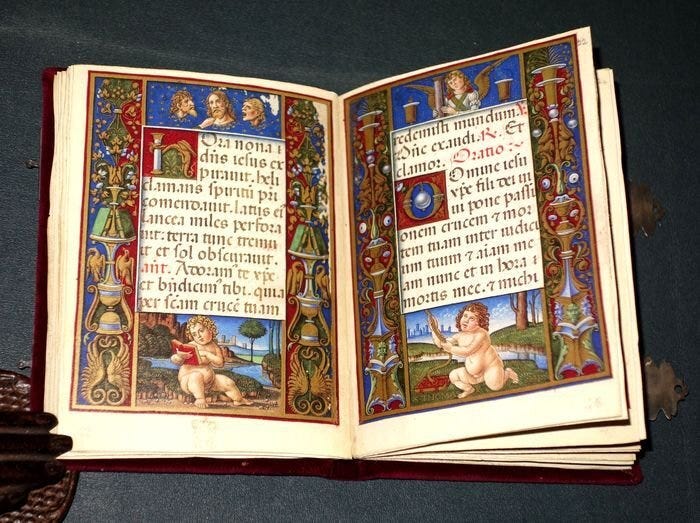 Hora nona i
dñs iesus ex
pirauit. heli
clamans spiritū pri
comendauit. Latus ei
lancea miles perfora
uit: terra tunc tremu
it et sol obscurauit.
añt. Adoram⁹ te xp̄e
et bñdicim⁹ tibi. quia
per scām crucē tuam
redemisti mundum. ℣.
Dñe exaudi. ℟. Et
clamor. Oratio.
Domine iesu
xp̄e fili dei ui
ui pone passi
onem crucem & mor
tem tuam inter iudici
um tuum & aīam me
am nunc et in hora
mortis mee. & michi